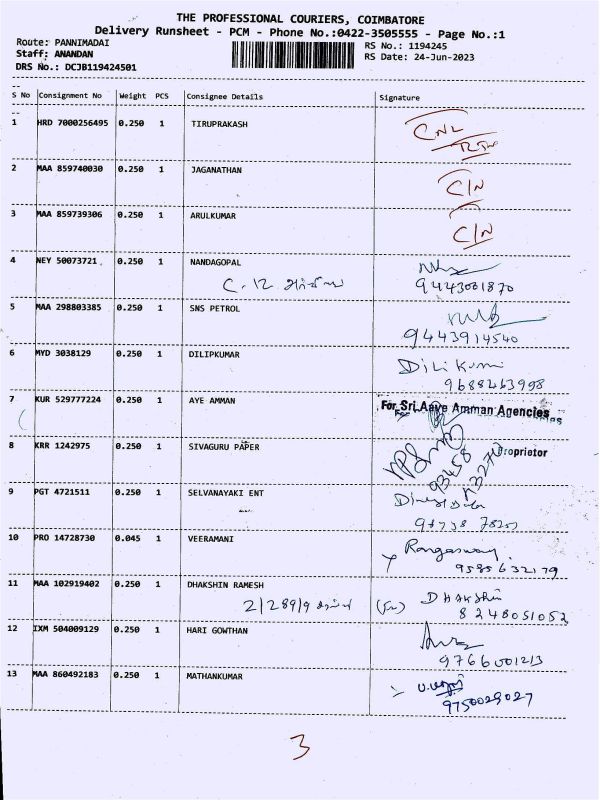 THE PROFESSIONAL COURIERS, COIMBATORE
Delivery Runsheet - PCM - Phone No.:0422-3505555 - Page No.:1
Route: PANNIMADAI
RS No.: 1194245
Staff: ANANDAN
RS Date: 24-Jun-2023
DRS No.: DCJB119424501
S No Consignment No Weight PCS Consignee Details Signature
1 HRD 7000256495 0.250 1 TIRUPRAKASH CNL
2 MAA 859740030 0.250 1 JAGANATHAN C/N
3 MAA 859739306 0.250 1 ARULKUMAR C/N
4 NEY 50073721 0.250 1 NANDAGOPAL
9443001870
5 MAA 298803385 0.250 1 SNS PETROL
9443914540
6 MYD 3038129 0.250 1 DILIPKUMAR Dili Kumi
9688463998
7 KUR 529777224 0.250 1 AYE AMMAN For Sri Aaye Amman Agencies
8 KRR 1242975 0.250 1 SIVAGURU PAPER Proprietor
9 PGT 4721511 0.250 1 SELVANAYAKI ENT
10 PRO 14728730 0.045 1 VEERAMANI Rangasway
9585632179
11 MAA 102919402 0.250 1 DHAKSHIN RAMESH DHAKSHIN
2/289/9 8248051052
12 IXM 504009129 0.250 1 HARI GOWTHAN
9766001213
13 MAA 860492183 0.250 1 MATHANKUMAR
9750029027
3